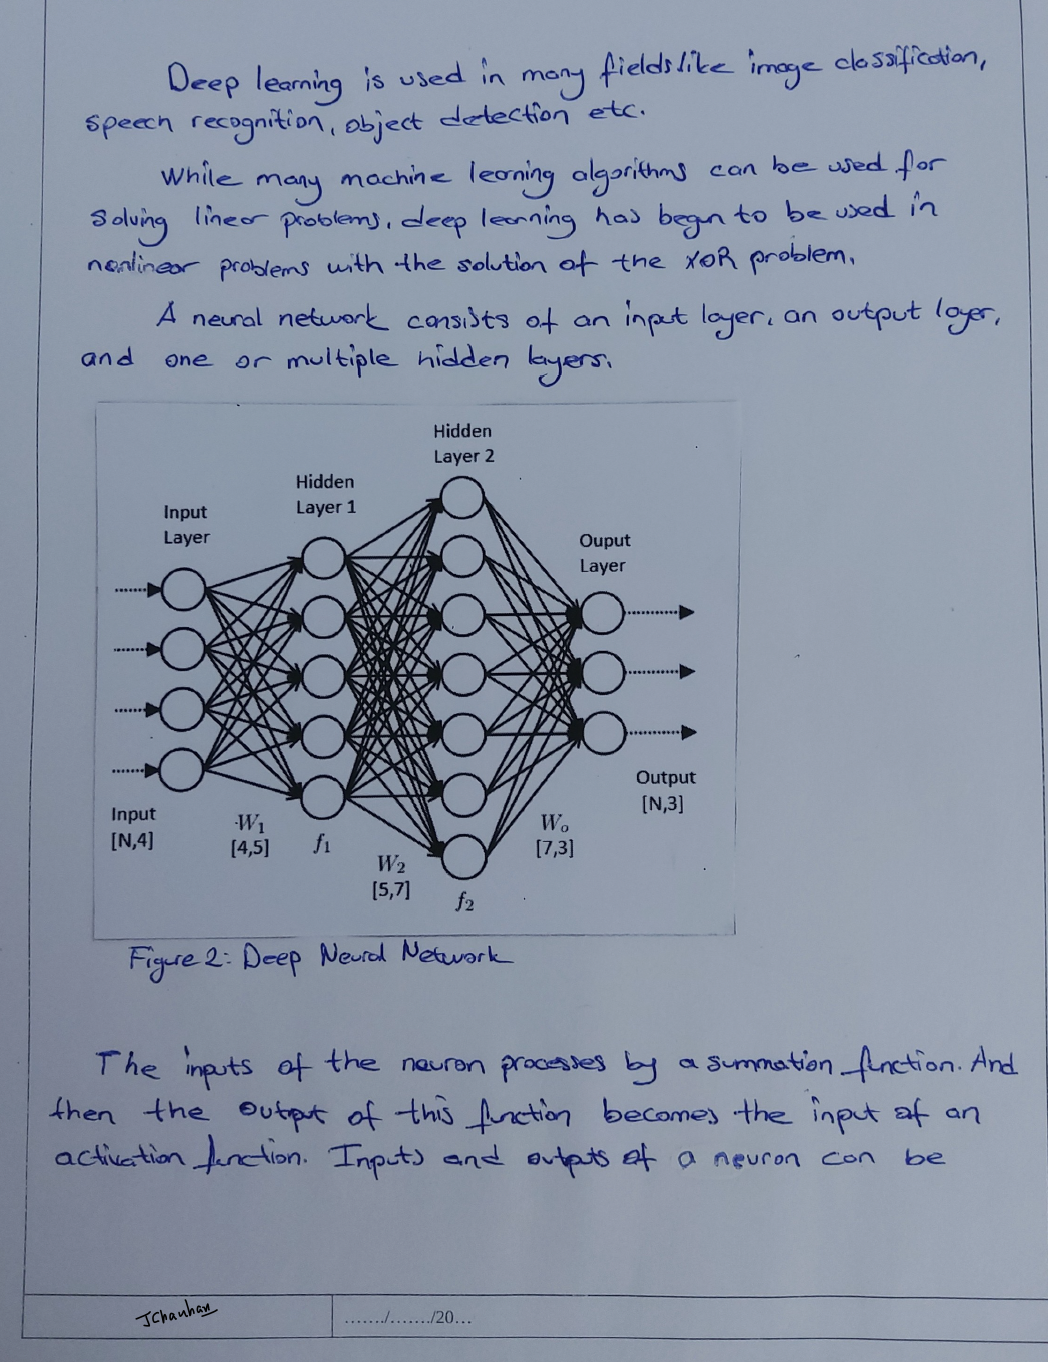 Deep learning is used in many fields like image classification,
speech recognition, object detection etc.
While many machine learning algorithms can be used for
solving linear problems, deep learning has begun to be used in
nonlinear problems with the solution of the XOR problem.
A neural network consists of an input layer, an output layer,
and one or multiple hidden layers.
Hidden
Layer 2
Hidden
Layer 1
Input
Layer
Ouput
Layer
Output
[N,3]
Input
[N,4]
W1
[4,5]
f1
W2
[5,7]
f2
Wo
[7,3]
Figure 2: Deep Neural Network
The inputs of the neuron processes by a summation function. And
then the output of this function becomes the input of an
activation function. Inputs and outputs of a neuron can be
JChauhan
......./......./20...